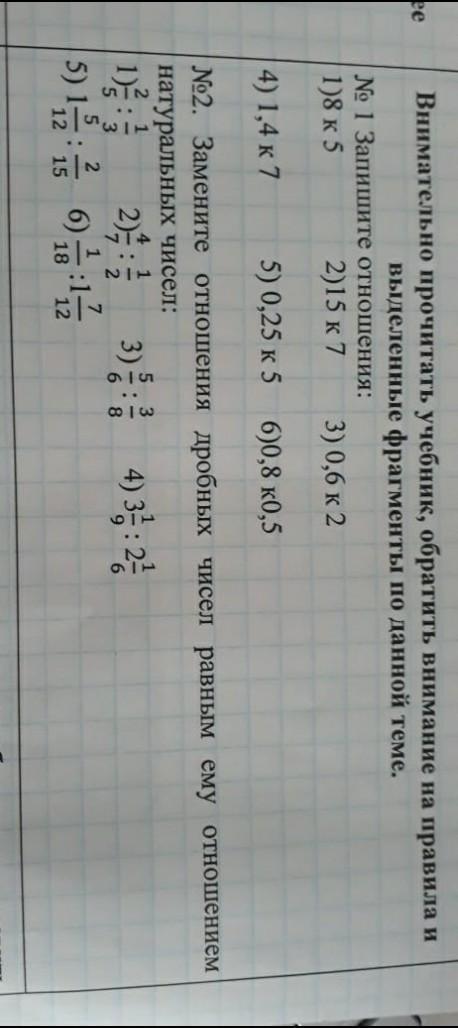 ее
Внимательно прочитать учебник, обратить внимание на правила и
выделенные фрагменты по данной теме.
№ 1 Запишите отношения:
1)8 к 5 2)15 к 7 3) 0,6 к 2
4) 1,4 к 7 5) 0,25 к 5 6)0,8 к0,5
№2. Замените отношения дробных чисел равным ему отношением
натуральных чисел:
1) 2/5 : 1/3 2) 4/7 : 1/2 3) 5/6 : 3/8 4) 3 1/9 : 2 1/6
5) 1 5/12 : 2/15 6) 1/18 : 1 7/12